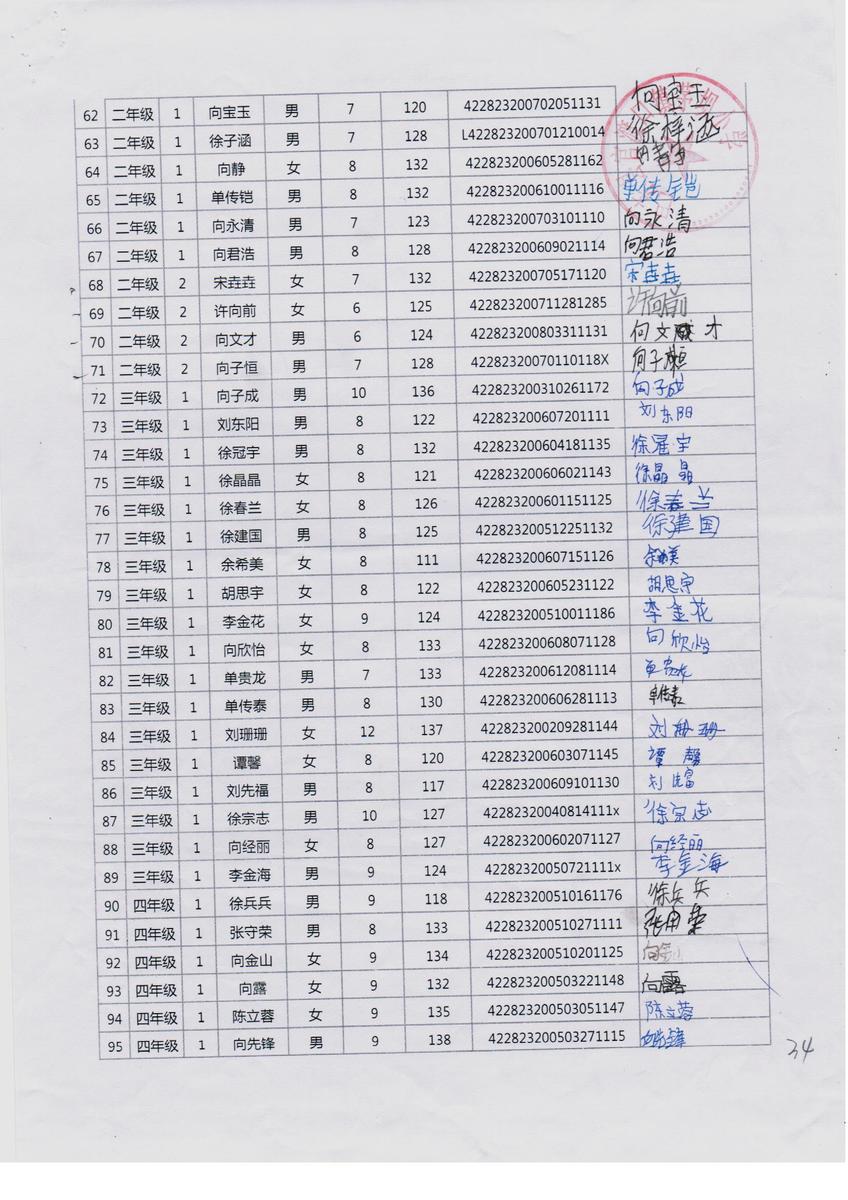 62 二年级 1 向宝玉 男 7 120 422823200702051131 向宝玉
63 二年级 1 徐子涵 男 7 128 L422823200701210014 徐梓涵
64 二年级 1 向静 女 8 132 422823200605281162
65 二年级 1 单传铠 男 8 132 422823200610011116 单传铠
66 二年级 1 向永清 男 7 123 422823200703101110 向永清
67 二年级 1 向君浩 男 8 128 422823200609021114 向君浩
68 二年级 2 宋垚垚 女 7 132 422823200705171120 宋垚垚
69 二年级 2 许向前 女 6 125 422823200711281285 许向前
70 二年级 2 向文才 男 6 124 422823200803311131 向文才
71 二年级 2 向子恒 男 7 128 42282320070110118X 向子恒
72 三年级 1 向子成 男 10 136 422823200310261172 向子成
73 三年级 1 刘东阳 男 8 122 422823200607201111 刘东阳
74 三年级 1 徐冠宇 男 8 132 422823200604181135 徐冠宇
75 三年级 1 徐晶晶 女 8 121 422823200606021143 徐晶晶
76 三年级 1 徐春兰 女 8 126 422823200601151125 徐春兰
77 三年级 1 徐建国 男 8 125 422823200512251132 徐建国
78 三年级 1 余希美 女 8 111 422823200607151126 余希美
79 三年级 1 胡思宇 女 8 122 422823200605231122 胡思宇
80 三年级 1 李金花 女 9 124 422823200510011186 李金花
81 三年级 1 向欣怡 女 8 133 422823200608071128 向欣怡
82 三年级 1 单贵龙 男 7 133 422823200612081114 单贵龙
83 三年级 1 单传泰 男 8 130 422823200606281113 单传泰
84 三年级 1 刘珊珊 女 12 137 422823200209281144 刘珊珊
85 三年级 1 谭馨 女 8 120 422823200603071145 谭馨
86 三年级 1 刘先福 男 8 117 422823200609101130 刘先富
87 三年级 1 徐宗志 男 10 127 42282320040814111x 徐宗志
88 三年级 1 向经丽 女 8 127 422823200602071127 向经丽
89 三年级 1 李金海 男 9 124 42282320050721111x 李金海
90 四年级 1 徐兵兵 男 9 118 422823200510161176 徐兵兵
91 四年级 1 张守荣 男 8 133 422823200510271111
92 四年级 1 向金山 女 9 134 422823200510201125
93 四年级 1 向露 女 9 132 422823200503221148 向露
94 四年级 1 陈立蓉 女 9 135 422823200503051147 陈立蓉
95 四年级 1 向先锋 男 9 138 422823200503271115 向先锋
34